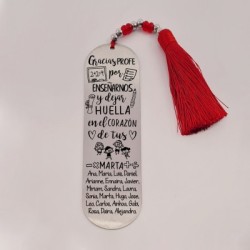 Gracias PROFE
2024 por
ENSEÑARNOS
y dejar
HUELLA
en el CORAZÓN
de tus
MARTA
Ana, Mario, Luis, Daniel,
Arianne, Ennaira, Javier,
Miriam, Sandra, Laura,
Sonia, Marta, Hugo, Jose,
Leo, Carlos, Ainhoa, Gabi,
Rosa, Daira, Alejandra.